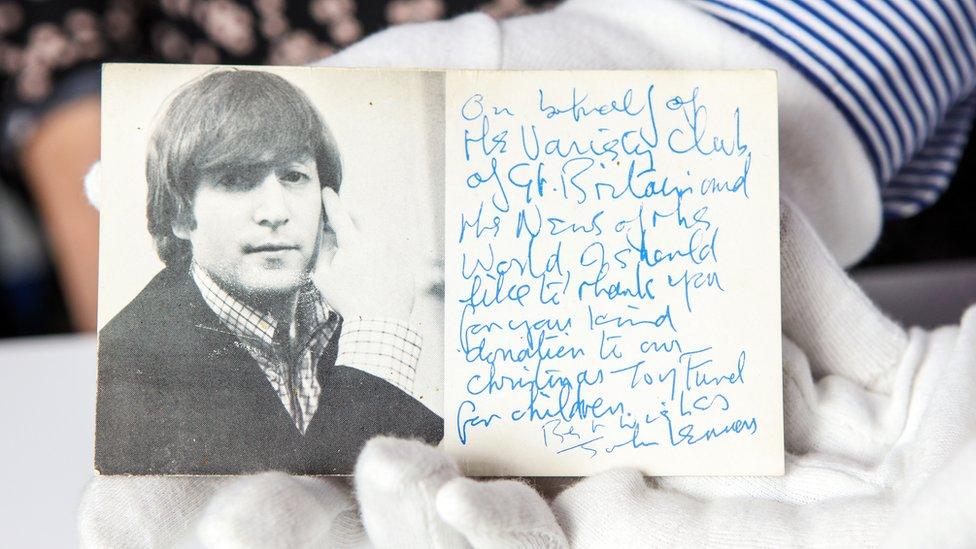 On behalf of
the Variety Club
of Gt. Britain and
the News of the
World, I should
like to thank you
for your kind
donation to our
christmas Toy Fund
for children.
Best wishes
John Lennon